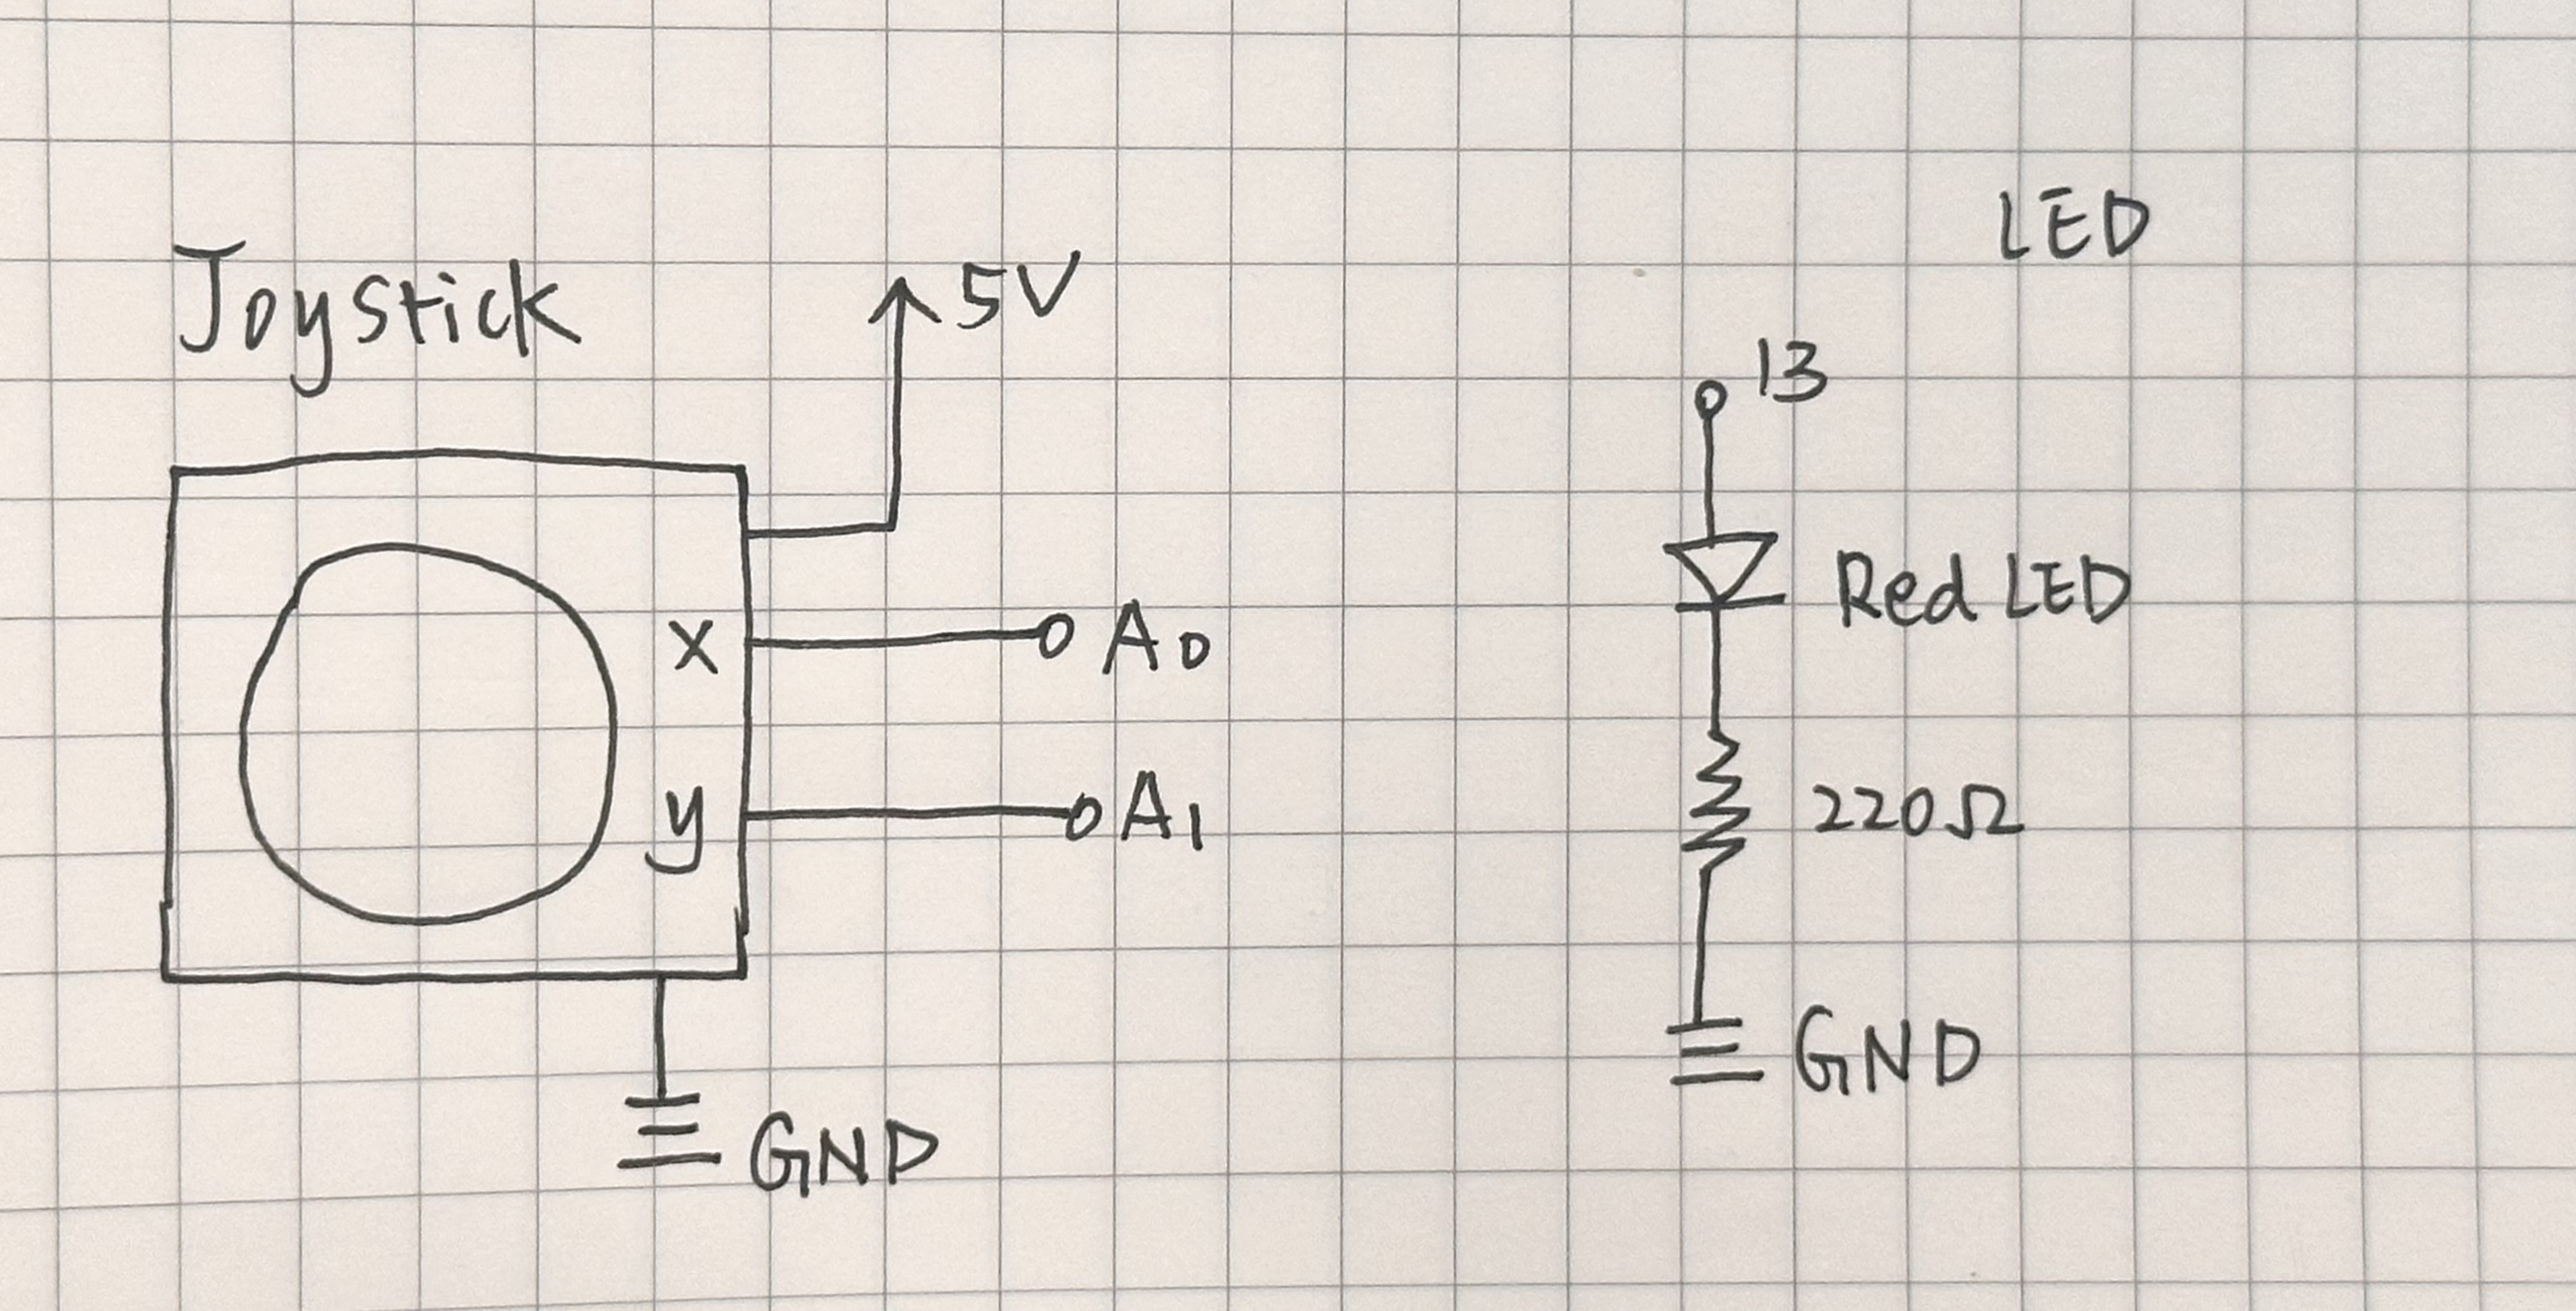 Joystick
5V
x
A0
y
A1
GND
LED
13
Red LED
220Ω
GND